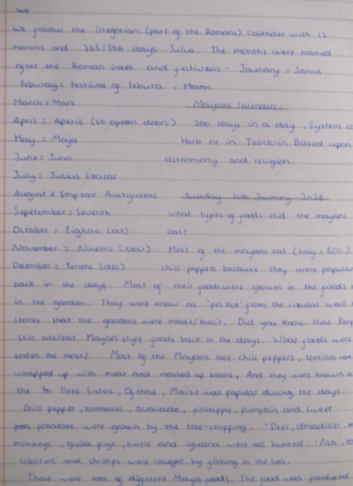 We
We follow the Gregorian (part of the Romans) calender with 12
months and 365/366 days Julius. The months were named
after the Roman Gods and festivals - January = Janus
Feburary = Festival of Febura, Moon
March = Mars Mayan Calender:
April = Aperie (to open doors) 260 days in a day, System
May = Maja or in Tzolk-in Based upon
June = Juno astronomy and religion.
July = Julius Ceasar
August = Emperor Sunday 11th January 2026
September = Seventh What types of foods did the mayans
October = Eighth (oct) eat?
November = Nineth (Nov) Most of the mayans eat
December = Tenth (dec) chili peppers because they were popular
back in the days. Most of their foods were grown in the fields
in the garden. They were know as 'pet kot' from the circular wall
stones that the gardens were made/built. Did you know that
still ate/eat Mayan style foods back in the days. What foods were
eaten the most? Most of the Mayans ate chili peppers, tortillas
wrapped up with meat and mashed up beans. And they were known as
the In Three Sisters. Of these, Maize was popular during the days.
Chili pepper, tomatoes, avacado, pineapple, pumpkin and sweet
potatoes were grown by the tree-cropping. Deer, armadillo,
monkeys, guinea pigs, turtle and iguana were all hunted. Fish,
lobsters and shrimps were caught by fishing in the sea.
There were lots of different Maya foods. The food was produced